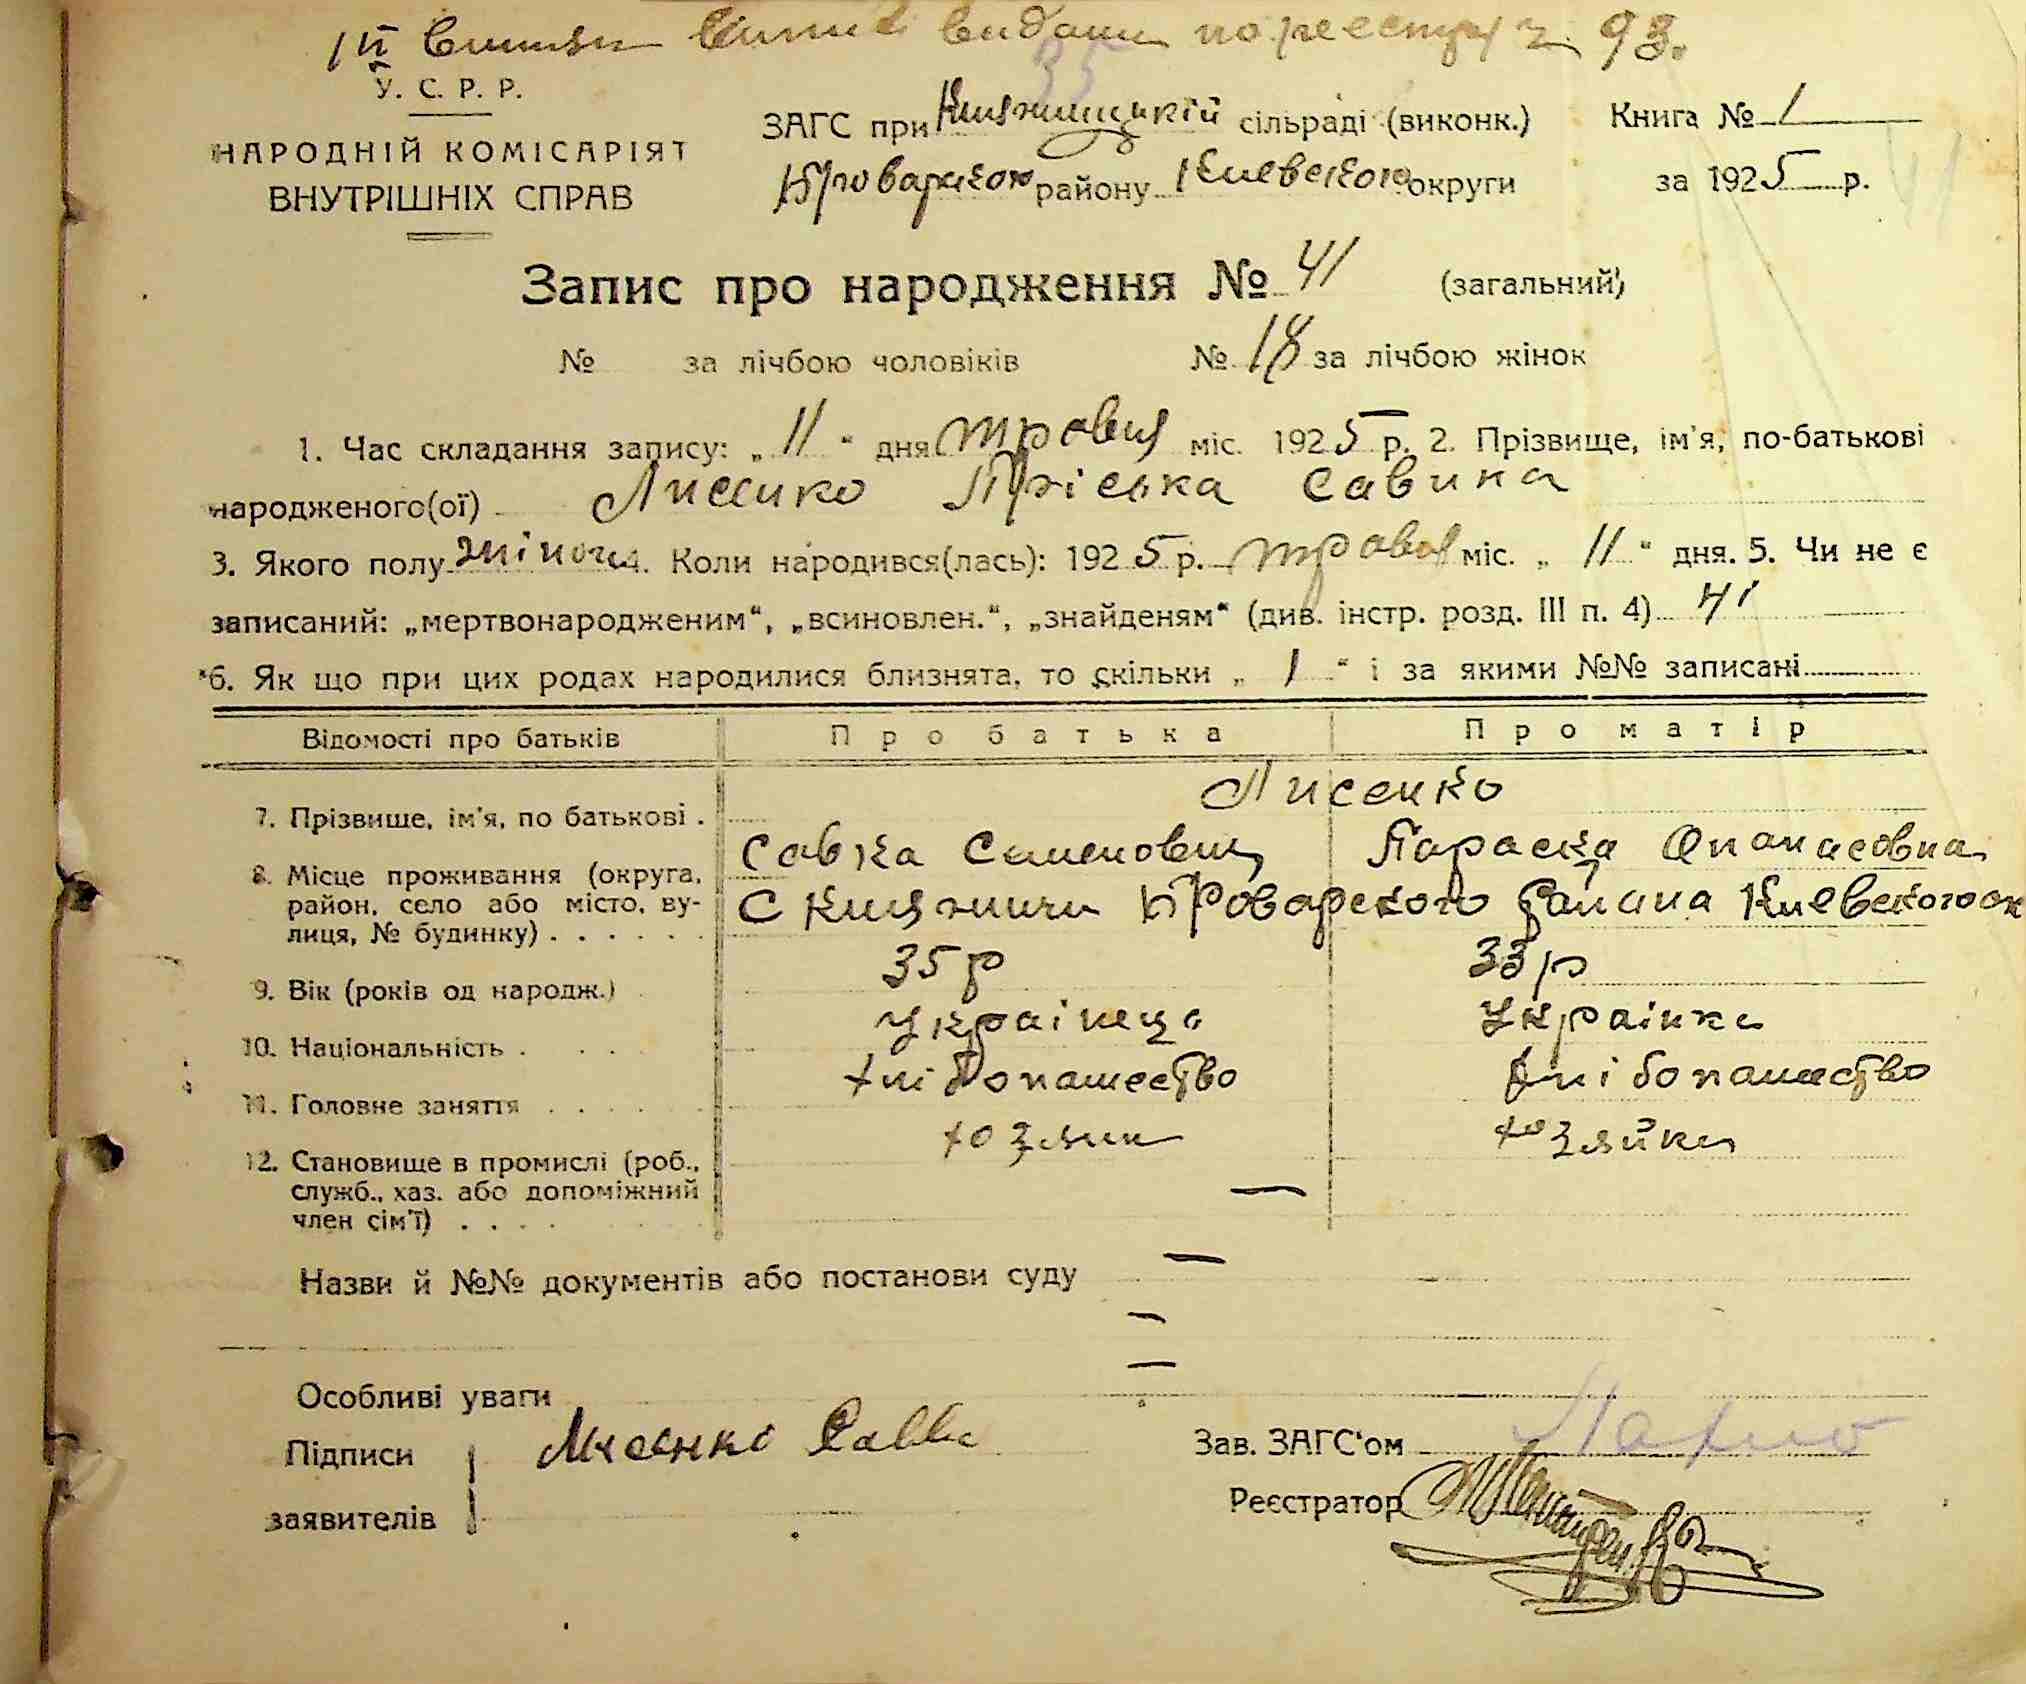 по реестру 93.
У. С. Р. Р.
НАРОДНІЙ КОМІСАРІЯТ
ВНУТРІШНІХ СПРАВ
ЗАГС при Княжицькій сільраді (виконк.)
Броварского району Киевского округи
Книга № 1
за 1925 р.
35
Запис про народження № 41 (загальний)
№ за лічбою чоловіків № 18 за лічбою жінок
1. Час складання запису: „ 11 “ дня травня міс. 1925 р. 2. Прізвище, ім'я, по-батькові
народженого(ої) Лисенко Пріська Савина
3. Якого полу жіноча. Коли народився(лась): 1925 р. травня міс. „ 11 “ дня. 5. Чи не є
записаний: „мертвонародженим“, „всиновлен.“, „знайденям“ (див. інстр. розд. III п. 4) Ні
6. Як що при цих родах народилися близнята, то скільки „ 1 “ і за якими №№ записані
Відомості про батьків Про батька Про матір
7. Прізвище, ім'я, по батькові . Лисенко
Савка Семенович Параска Опанасовна
8. Місце проживання (округа, район, село або місто, вулиця, № будинку) . . . . . .
С Княжичи Броварского Района Киевского ок
9. Вік (років од народж.) 35 р 33 р
10. Національність . . . . Українець Українка
11. Головне заняття . . . . . Хлібопашество Хлібопашество
12. Становище в промислі (роб., служб., хаз. або допоміжний член сім'ї) . . . .
хозяин хозяйка
—
Назви й №№ документів або постанови суду —
—
—
Особливі уваги
Підписи Лисенко Савва
заявителів
Зав. ЗАГС'ом
Реєстратор